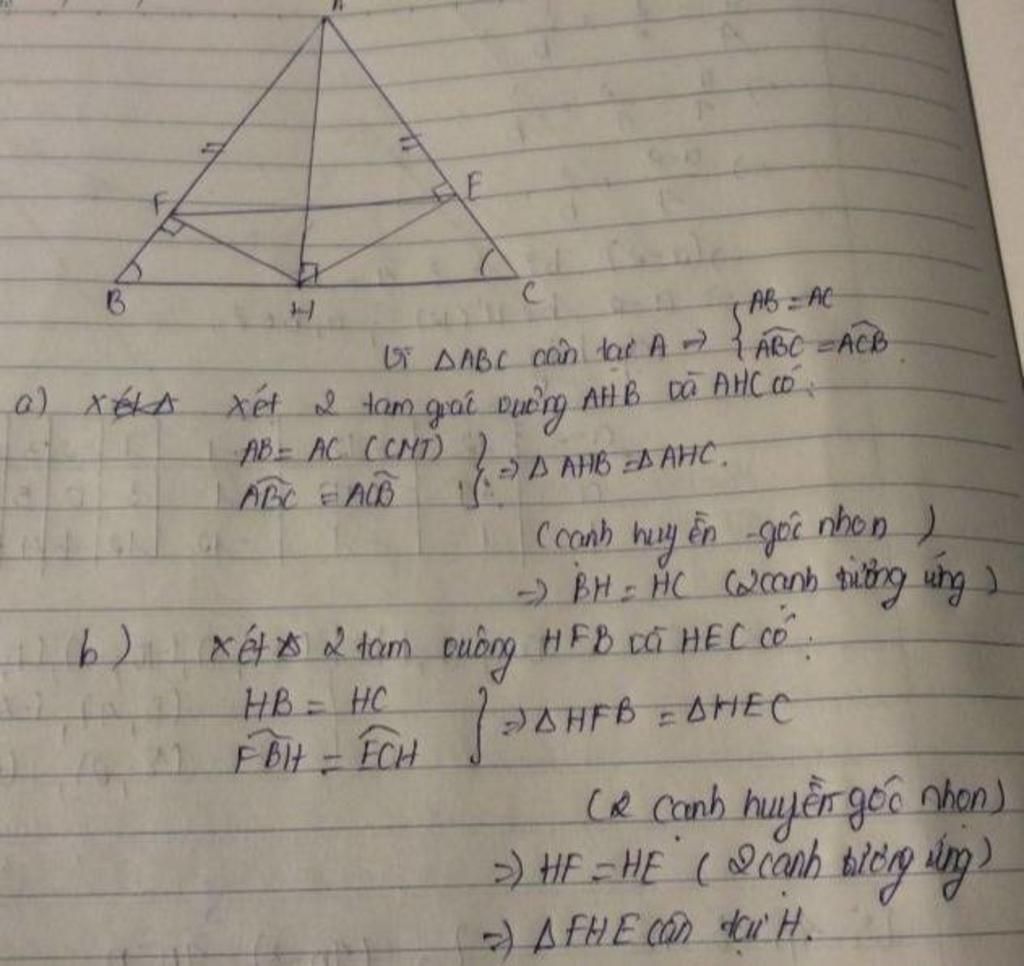 A
F
E
B
H
C
Vì ΔABC cân tại A ⇒ { AB = AC
ABC = ACB
a) xét Δ xét 2 tam giác vuông AHB và AHC có:
AB = AC (CMT)
ABC = ACB } ⇒ Δ AHB = Δ AHC.
(cạnh huyền - góc nhọn)
⇒ BH = HC (2 cạnh tương ứng)
b) xét Δ 2 tam vuông HFB và HEC có:
HB = HC
FBH = ECH } ⇒ Δ HFB = Δ HEC
(2 cạnh huyền góc nhọn)
⇒ HF = HE (2 cạnh tương ứng)
⇒ Δ FHE cân tại H.